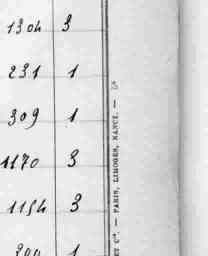 1304 3
231 1
309 1
1170 3
1154 3
300 1
ET Cie. — PARIS, LIMOGES, NANCY. —